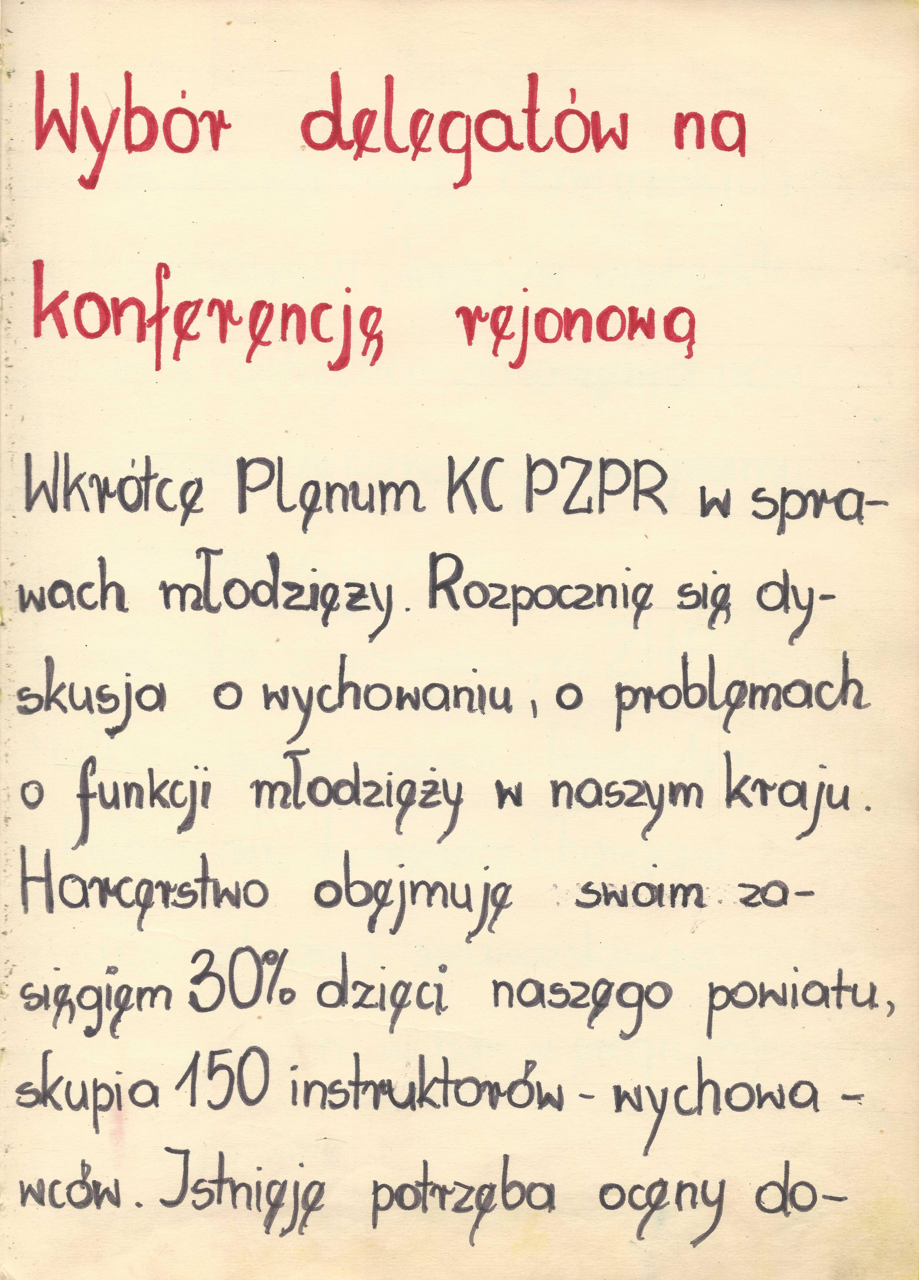 Wybór delegatów na
konferencję rejonową
Wkrótce Plenum KC PZPR w spra-
wach młodzieży. Rozpocznie się dy-
skusja o wychowaniu, o problemach
o funkcji młodzieży w naszym kraju.
Harcerstwo obejmuje swoim za-
sięgiem 30% dzieci naszego powiatu,
skupia 150 instruktorów - wychowa-
wców. Istnieje potrzeba oceny do-